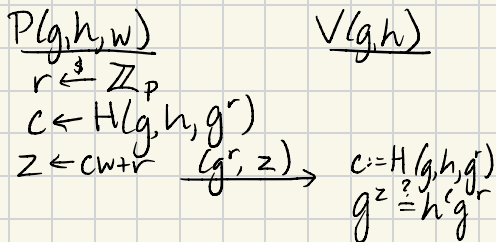 P(g,h,w) V(g,h)
r ←$ ℤp
c ← H(g,h,g^r)
z ← cw+r (g^r, z) c:=H(g,h,g^r)
g^z ≟ h^c g^r